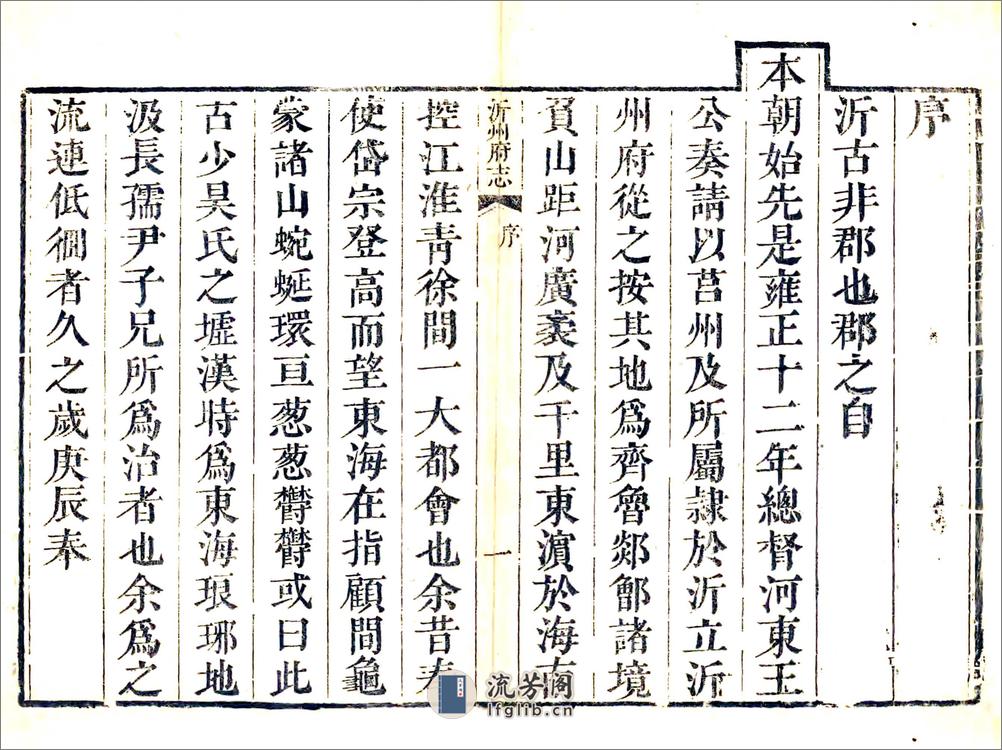 序
沂古非郡也郡之自
本朝始先是雍正十二年總督河東王
公奏請以莒州及所屬隷於沂立沂
州府從之按其地爲齊魯郯鄫諸境
負山距河廣袤及千里東濵於海南
沂州府志
序
一
控江淮青徐間一大都會也余昔奉
使岱宗登高而望東海在指顧間龜
蒙諸山蜿蜒環亘葱葱欝欝或曰此
古少昊氏之墟漢時爲東海琅琊地
汲長孺尹子兄所爲治者也余爲之
流連低徊者久之歲庚辰奉
流芳閣
lfglib.cn